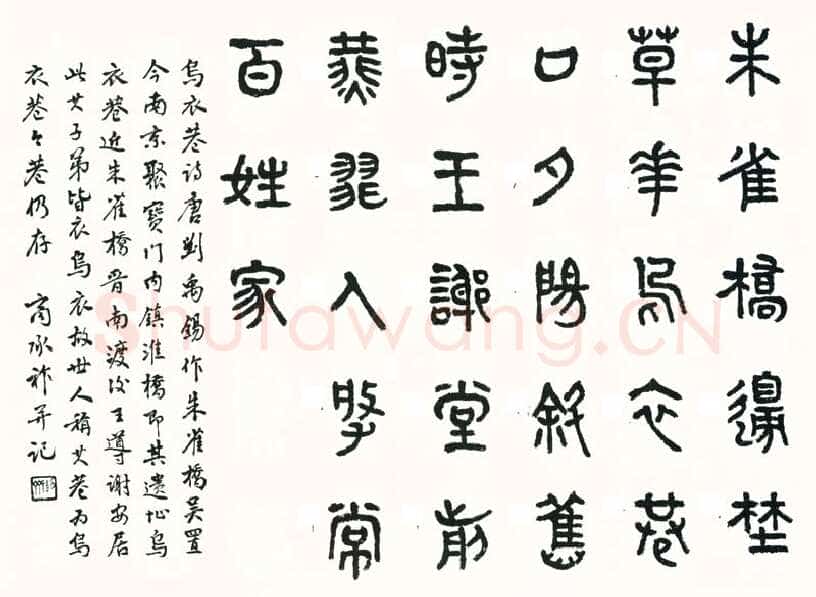 朱雀橋邊埜
草華烏衣巷
口夕陽斜舊
時王謝堂前
燕飛入尋常
百姓家
烏衣巷詩唐劉禹錫作朱雀橋吴置
今南京聚寶门内鎮淮橋即其遺址烏
衣巷近朱雀橋晋南渡後王導谢安居
此其子弟皆衣烏衣故世人稱其巷为烏
衣巷々巷仍存 商承祚并记
Shufawang.CN